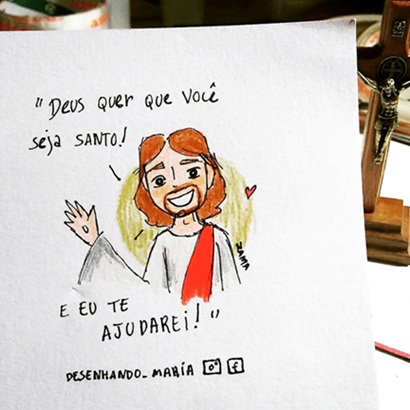 "Deus quer que você
seja SANTO!
ZAMA
E EU TE
AJUDAREI!"
DESENHANDO_MARÍA